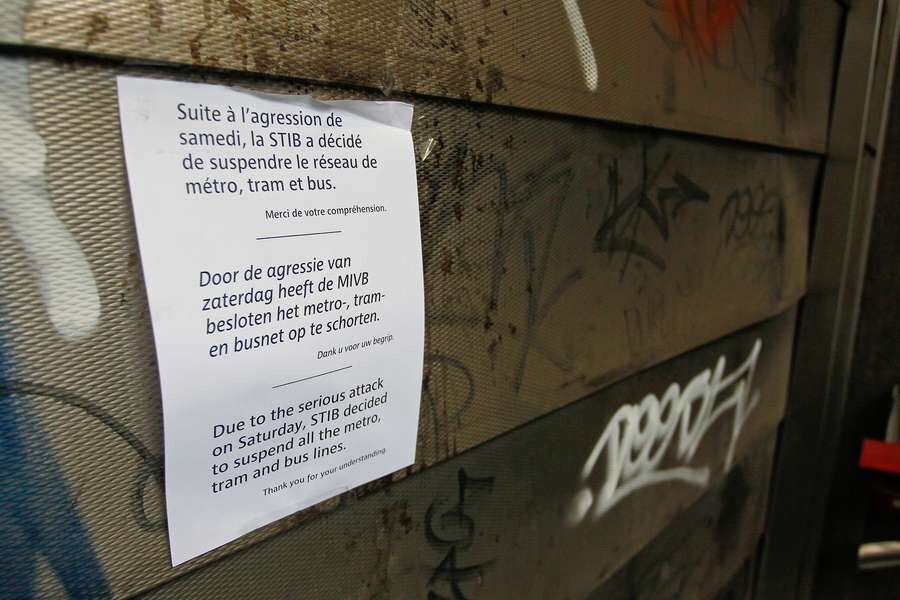 Suite à l'agression de
samedi, la STIB a décidé
de suspendre le réseau de
métro, tram et bus.
Merci de votre compréhension.
Door de agressie van
zaterdag heeft de MIVB
besloten het metro-, tram-
en busnet op te schorten.
Dank u voor uw begrip.
Due to the serious attack
on Saturday, STIB decided
to suspend all the metro,
tram and bus lines.
Thank you for your understanding.